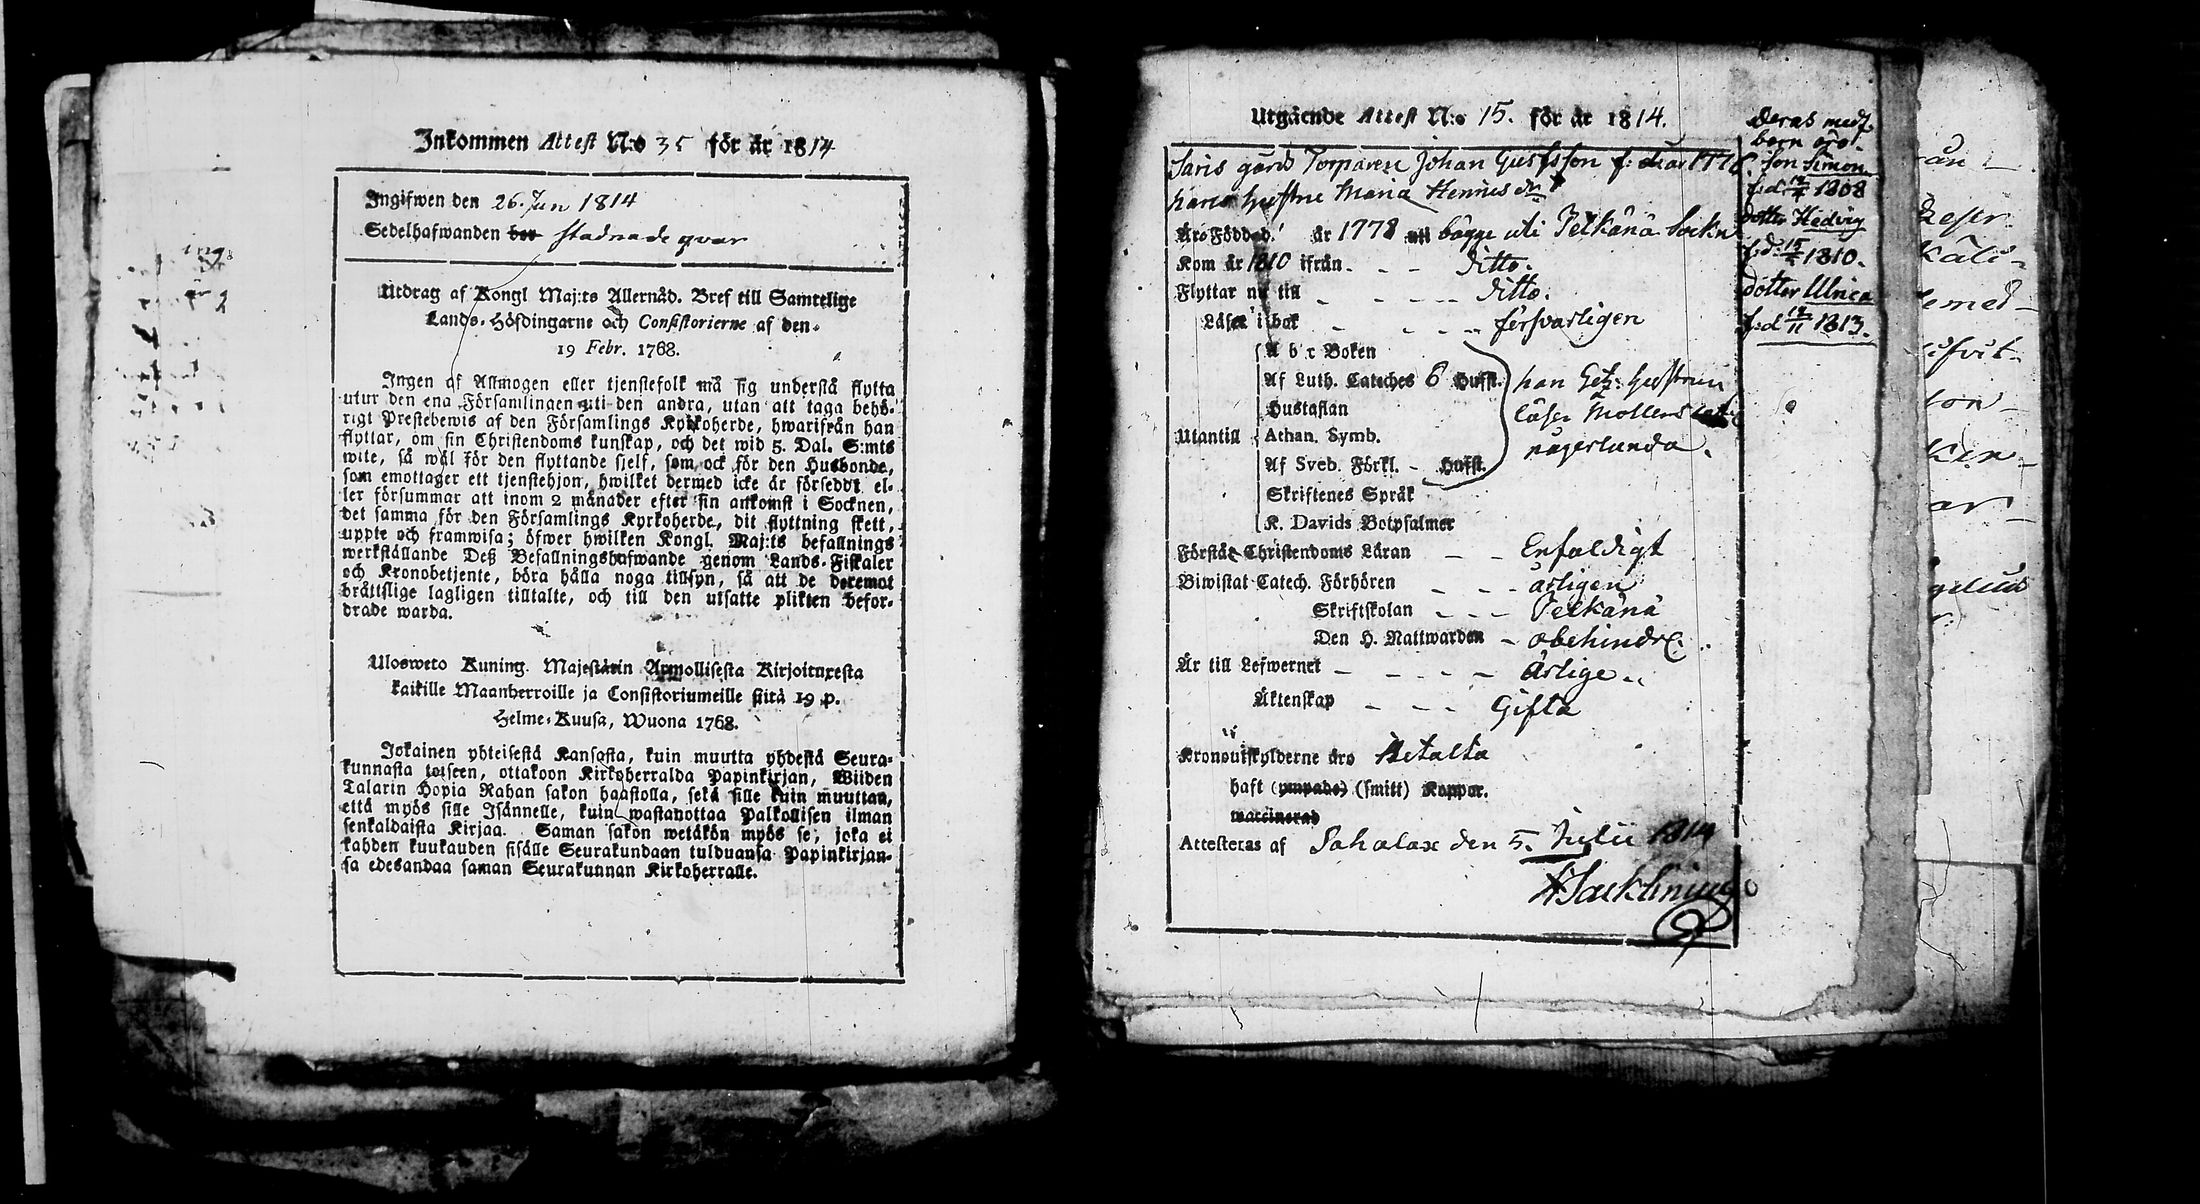 Inkommen Attest N:o 35 för år 1814
Ingifwen den 26. Jun 1814
Sedelhafwanden bor stadnade qvar
Utdrag af Kongl Maj:ts Allernåd. Bref till Samtelige
Lands-Höfdingarne och Consistorierne af den
19 Febr. 1768.
Ingen af Allmogen eller tjenstefolk må sig understå flytta
utur den ena Församlingen uti den andra, utan att taga behö-
rigt Prestebewis af den Församlings Kyrkoherde, hwarifrån han
flyttar, om sin Christendoms kunskap, och det wid 5. Dal. S:mts
wite, så wäl för den flyttande sjelf, som ock för den Husbonde,
som emottager ett tjenstehjon, hwilket dermed icke är försedd: el-
ler försummar att inom 2 månader efter sin ankomst i Socknen,
det samma för den Församlings Kyrkoherde, dit flyttning skett,
uppte och framwisa; öfwer hwilken Kongl. Maj:ts befallnings
werkställande Deß Befallningshafwande genom Lands-Fiskaler
och Kronobetjente, böra hålla noga tillsyn, så att de deremot
bråttslige lagligen tilltalte, och till den utsatte plikten befor-
drade warda.
Ulosweto Kuning. Majestätin Armollisesta Kirjoituxesta
kaikille Maanherroille ja Consistoriumeille siitä 19 p.
Helme-Kuusa, Wuona 1768.
Jokainen yhteisestä Kansasta, kuin muutta yhdestä Seura-
kunnasta toiseen, ottakoon Kirkoherralda Papinkirjan, Wiiden
Talarin Hopia Rahan sakon haastolla, sekä sille kuin muuttaa,
että myös sille Isännelle, kuin wastanottaa Palkollisen ilman
senkaldaista Kirjaa. Saman sakon wetäkön myös se, joka ei
kahden kuukauden sisälle Seurakundaan tulduansa Papinkirjan-
sa edesandaa saman Seurakunnan Kirkoherralle.
Utgående Attest N:o 15. för år 1814.
Saris gårds Torparen Johan Gustafsson f: d. år 1776.
hans hustru Maria Hennes dr
Äro Födde d. år 1778 uti bägge uti Pelkänä Sockn
Kom år 1810 ifrån - - - ditto.
Flyttar nu till - - - - - ditto.
Läser i bok - - - - försvarligen
Utantill
A b c Boken
Af Luth. Cateches 6 Hufst.
Hustaflan
Athan. Symb.
Af Sveb. Förkl. - Hufst.
Skriftenes Språk
K. Davids Botpsalmer
han hustrun
läser Mollers
någerlunda.
Förstår Christendoms Läran - - Enfaldigt
Biwistat Catech. Förhören - - - årligen
Skriftskolan - - - Pelkänä
Den H. Nattwarden - obehindr.
Är till Lefwernet - - - - - Ärlige
Äktenskap - - - Gifta
Kronoutskylderne äro Betalta
haft (ympade) (smitt) Koppor.
vaccinerad
Attesteras af Sahalax den 5. Julii 1814
Deras med
barn äro:
son Simon
f: d. 12/7 1808
dotter Hedvig
f: d. 1810.
dotter Ulrica
f: d 12/11 1813.